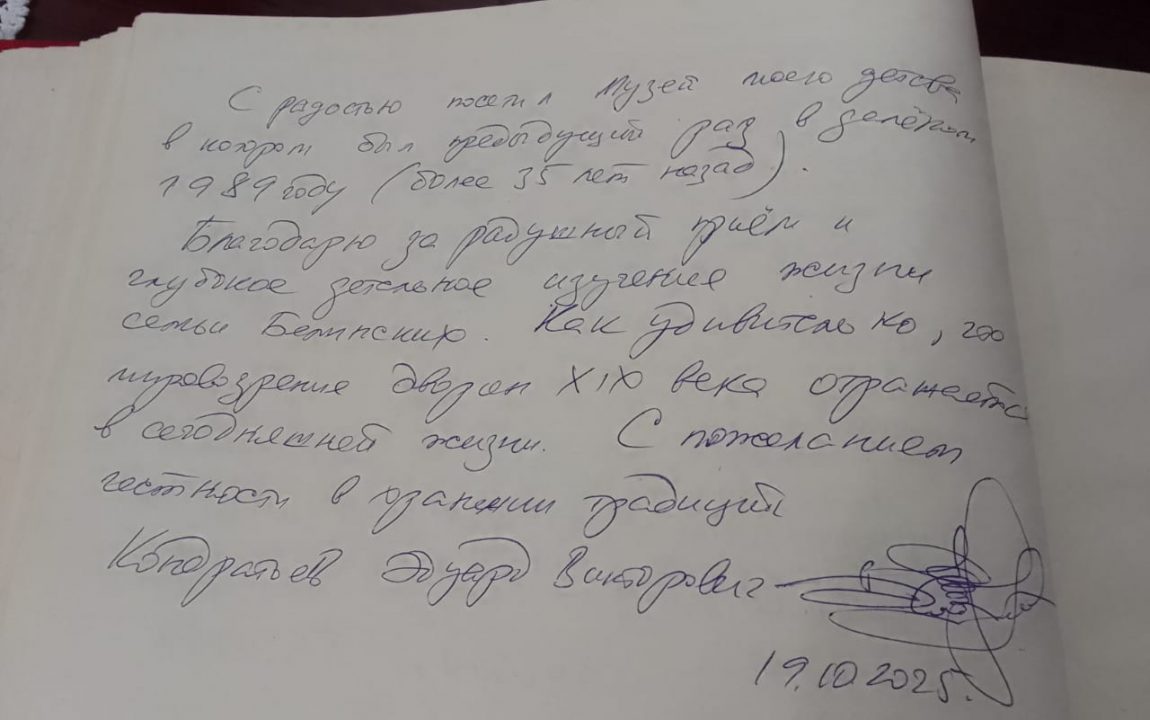 С радостью посетил Музей моего детства
в котором был предыдущий раз в далёком
1989 году (более 35 лет назад).
Благодарю за радушный приём и
глубокое детальное изучение жизни
семьи Белинских. Как удивительно, что
мировозрение дворян XIX века отражается
в сегодняшней жизни. С пожеланием
честности в хранении традиций
Кондратьев Эдуард Викторович
19.10.2025.